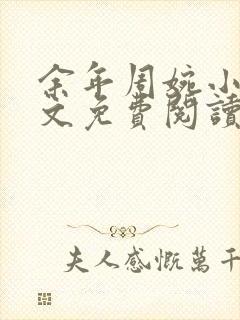 余年周婉小
文免費閱讀
夫人感慨萬千